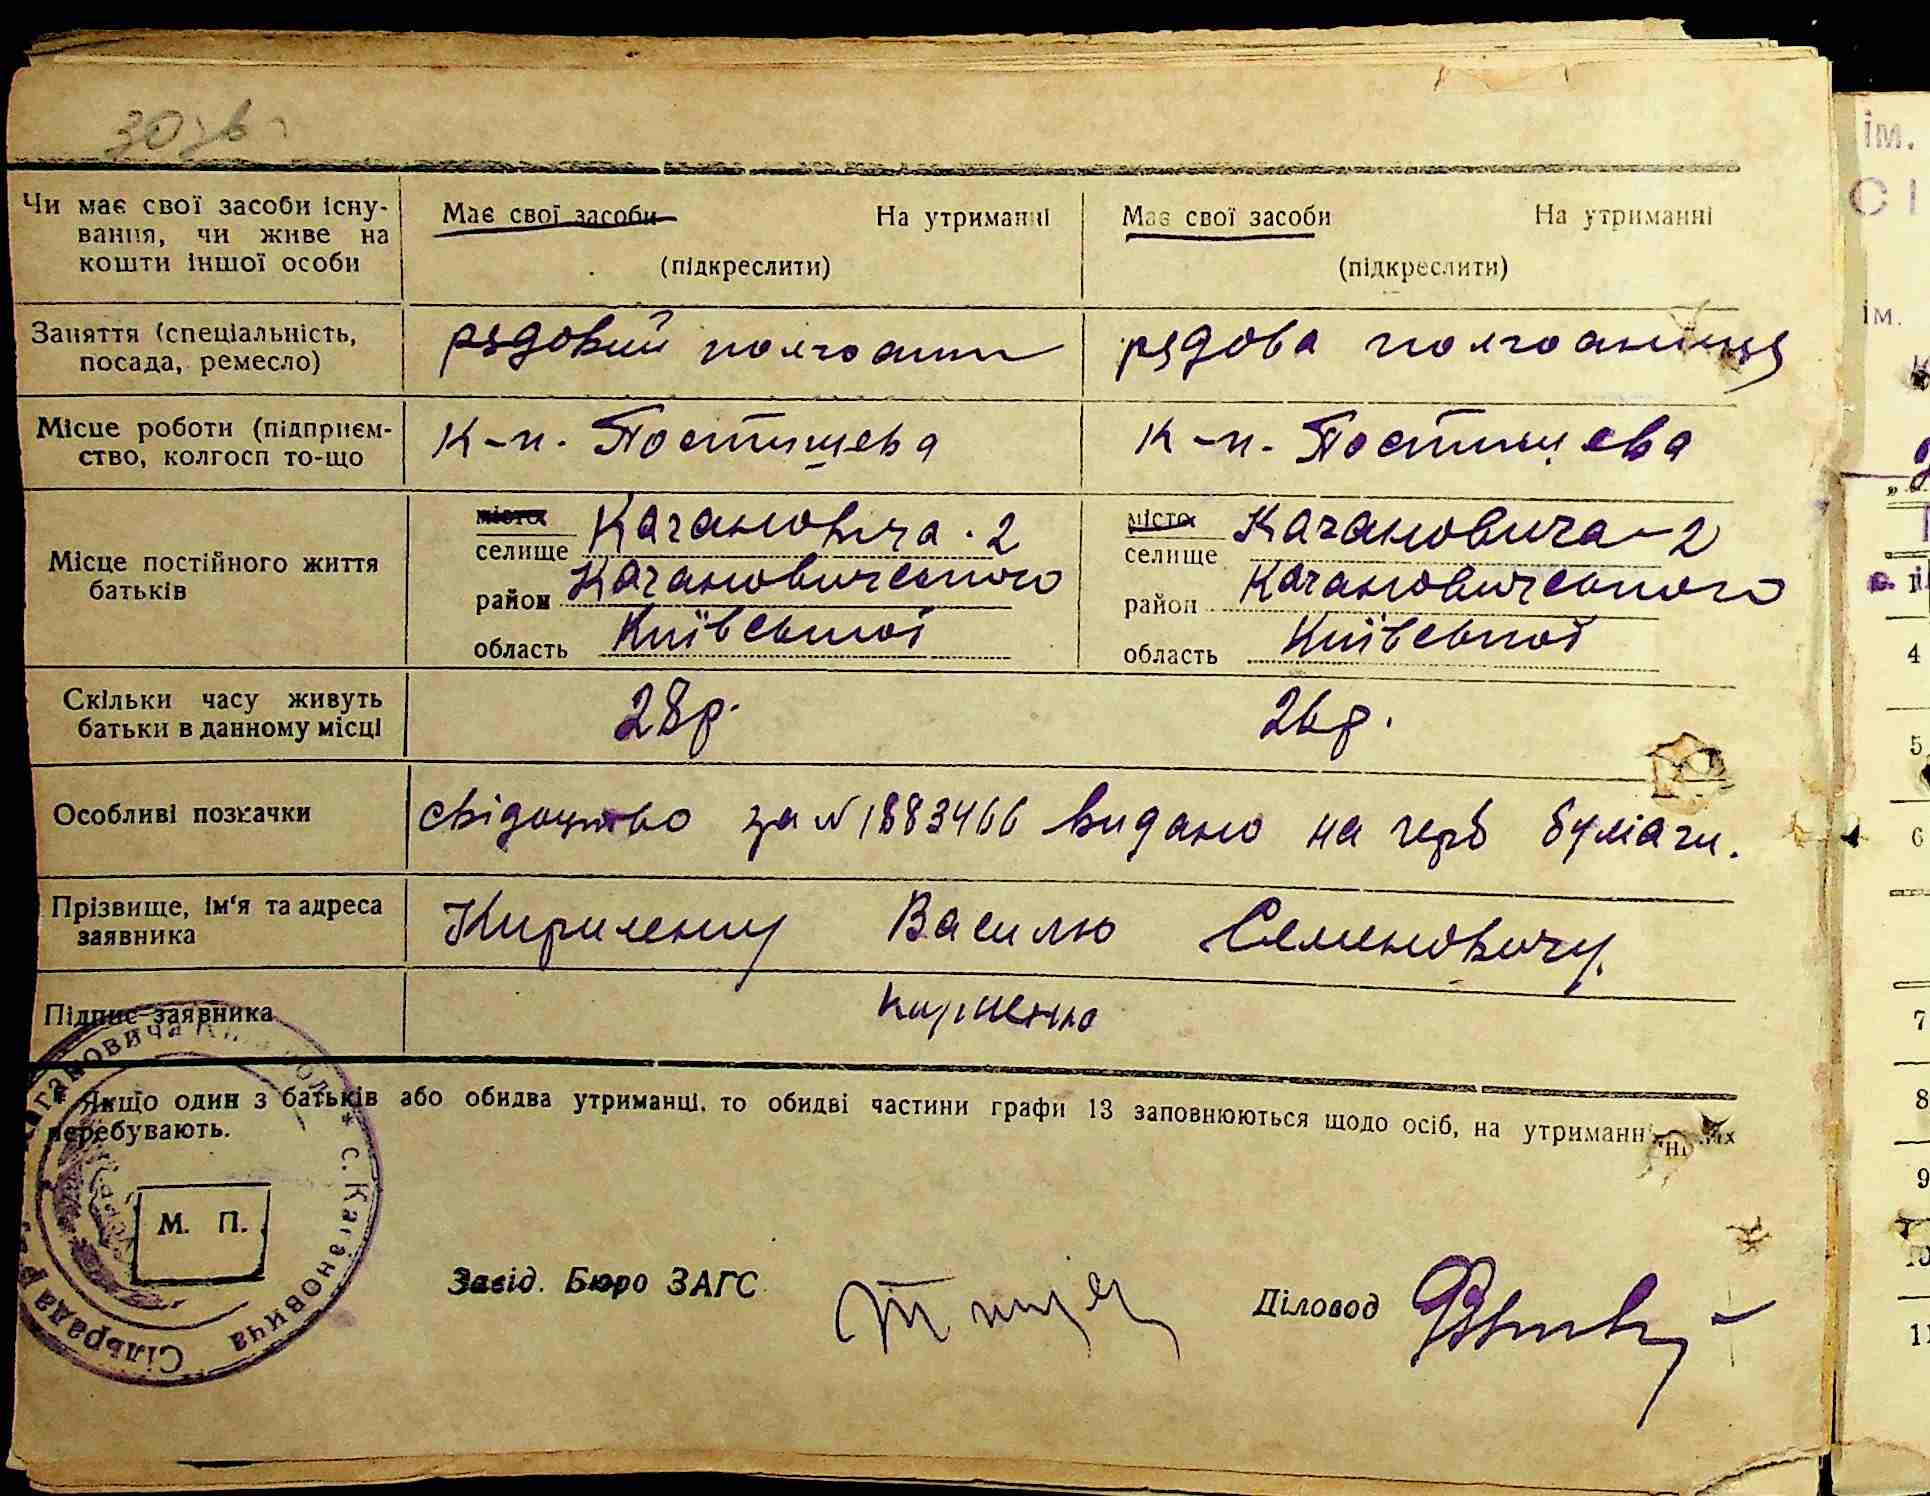 Чи має свої засоби існу-
вання, чи живе на
кошти іншої особи
Має свої засоби На утриманні
(підкреслити)
Має свої засоби На утриманні
(підкреслити)
Заняття (спеціальність,
посада, ремесло)
рядовий колгоспн
рядова колгоспниця
Місце роботи (підприєм-
ство, колгосп то-що
к-п. Постишева
к-п. Постишева
Місце постійного життя
батьків
місто
селище Кагановича - 2
район Кагановичського
область Київської
місто
селище Кагановича - 2
район Кагановичського
область Київської
Скільки часу живуть
батьки в данному місці
28 р.
26 р.
Особливі позначки
свідоцтво за № 1883466 видано на герб бумаги.
Прізвище, ім'я та адреса
заявника
Кириленку Василю Семеновичу.
Підпис заявника
Якщо один з батьків або обидва утриманці, то обидві частини графи 13 заповнюються щодо осіб, на утриманні
перебувають.
М. П.
Завід. Бюро ЗАГС
Діловод
Сільрада
с. Кагановича
ім.
ім.
4
5
6
7
8
9
10